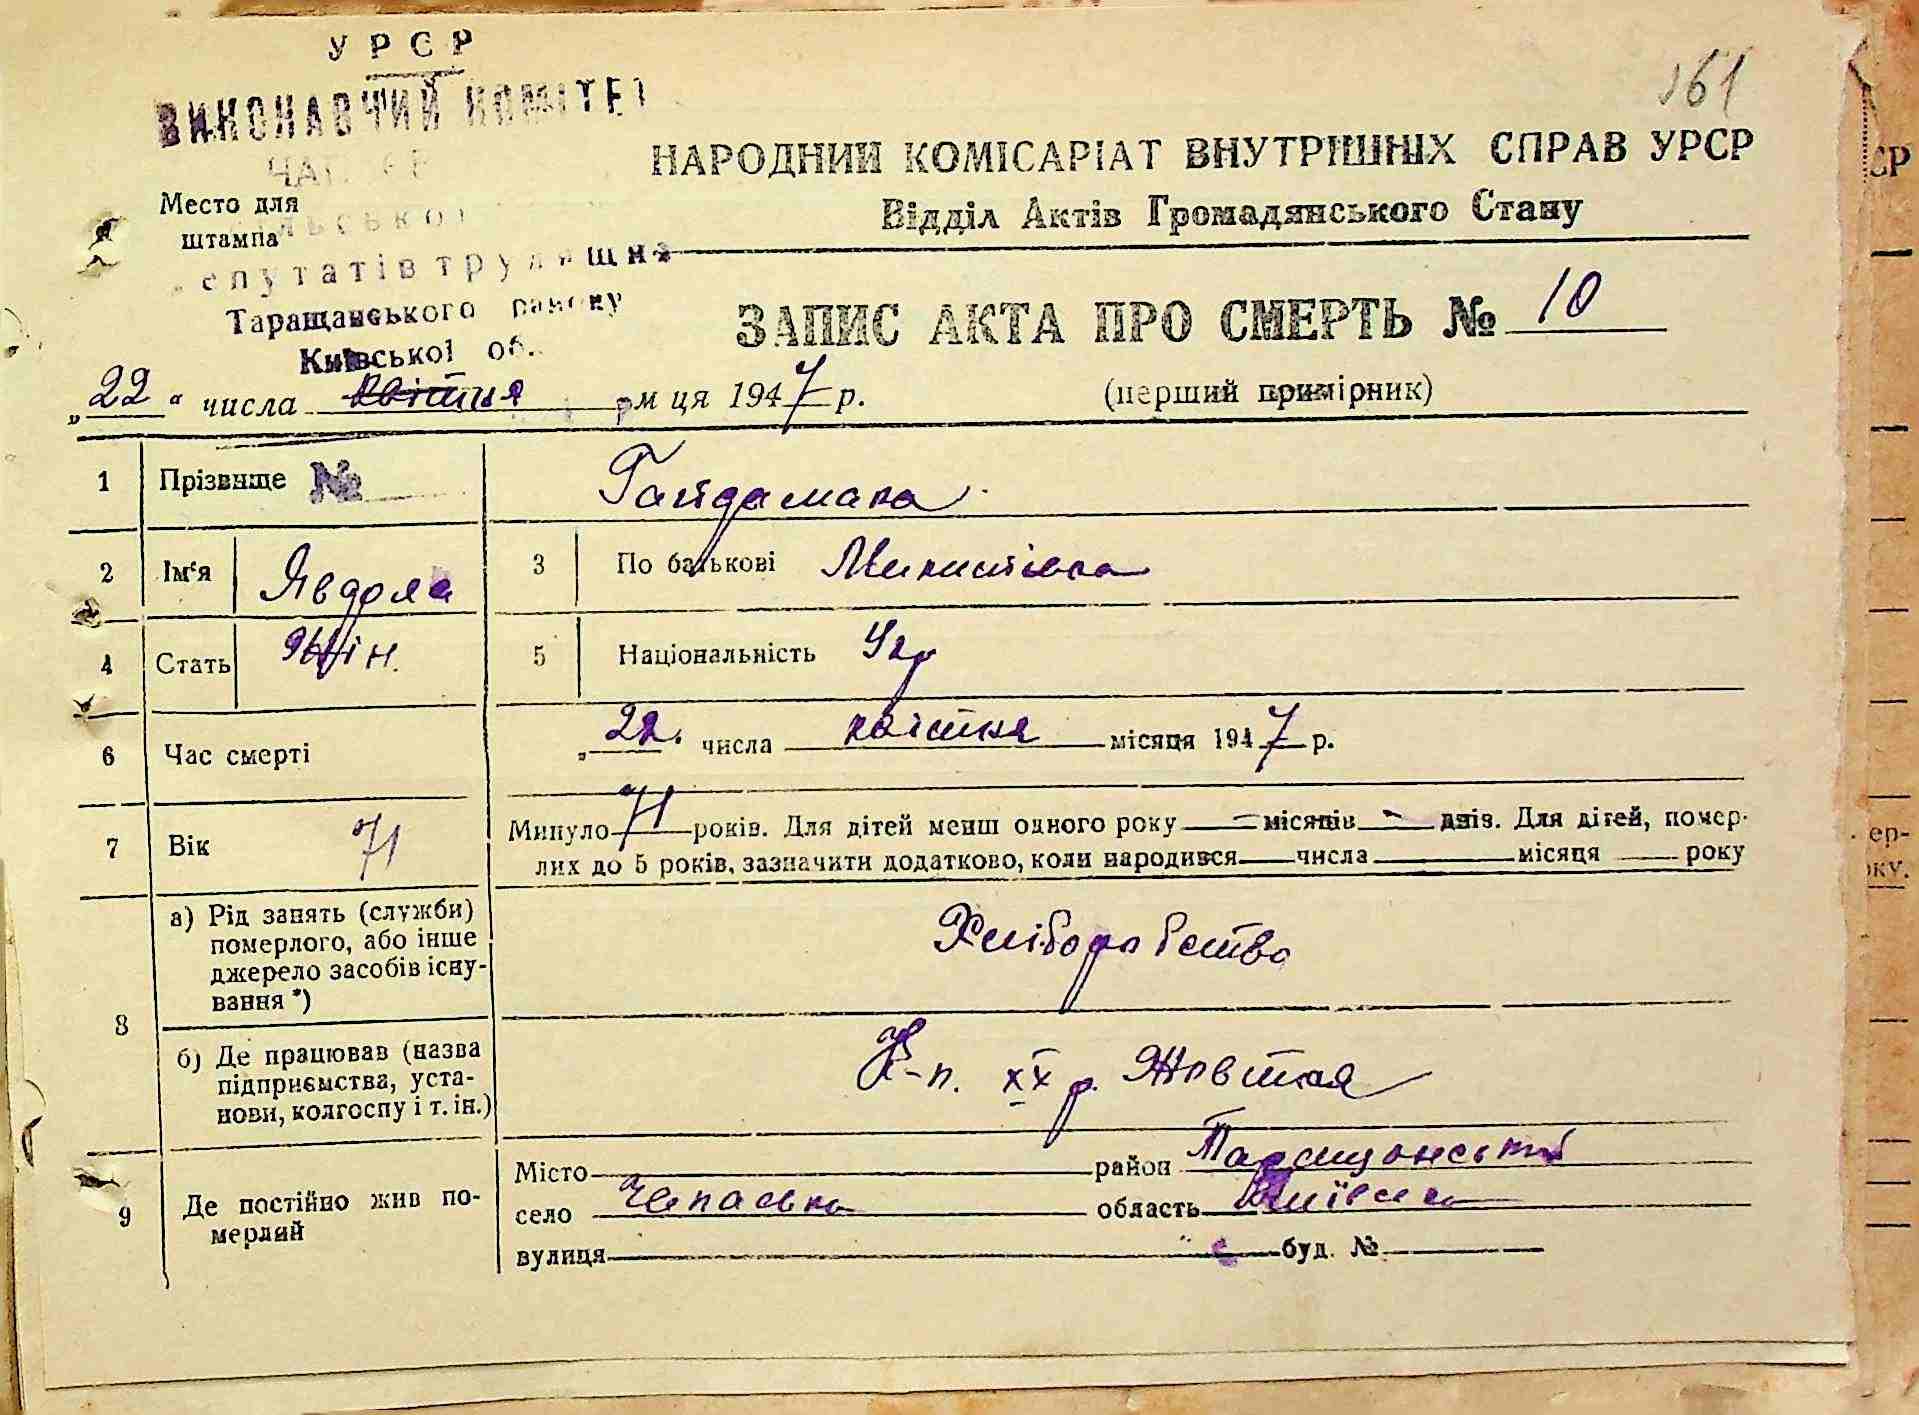 УРСР
161
ВИКОНАВЧИЙ КОМІТЕТ
НАРОДНИЙ КОМІСАРІАТ ВНУТРІШНІХ СПРАВ УРСР
Відділ Актів Громадянського Стану
Место для
штампа
сільської
депутатів трудящих
Таращанського району
Київської об.
ЗАПИС АКТА ПРО СМЕРТЬ № 10
(перший примірник)
„22“ числа квітня м ця 1947 р.
1 Прізвище № Гайдамака
2 Ім‘я Явдоха
3 По батькові Микитівна
4 Стать жін.
5 Національність Укр
6 Час смерті „22. числа квітня місяця 1947 р.
7 Вік 71 Минуло 71 років. Для дітей менш одного року — місяців - днів. Для дітей, помер-
лих до 5 років, зазначити додатково, коли народився числа місяця року
8 а) Рід занять (службы) померлого, або інше джерело засобів існування *) Хліборобство
б) Де працював (назва підприємства, установи, колгоспу і т. ін.) К-п. ХХ р. Жовтня
9 Де постійно жив померлий
Місто район Таращанський
село область Київська
вулиця буд. №